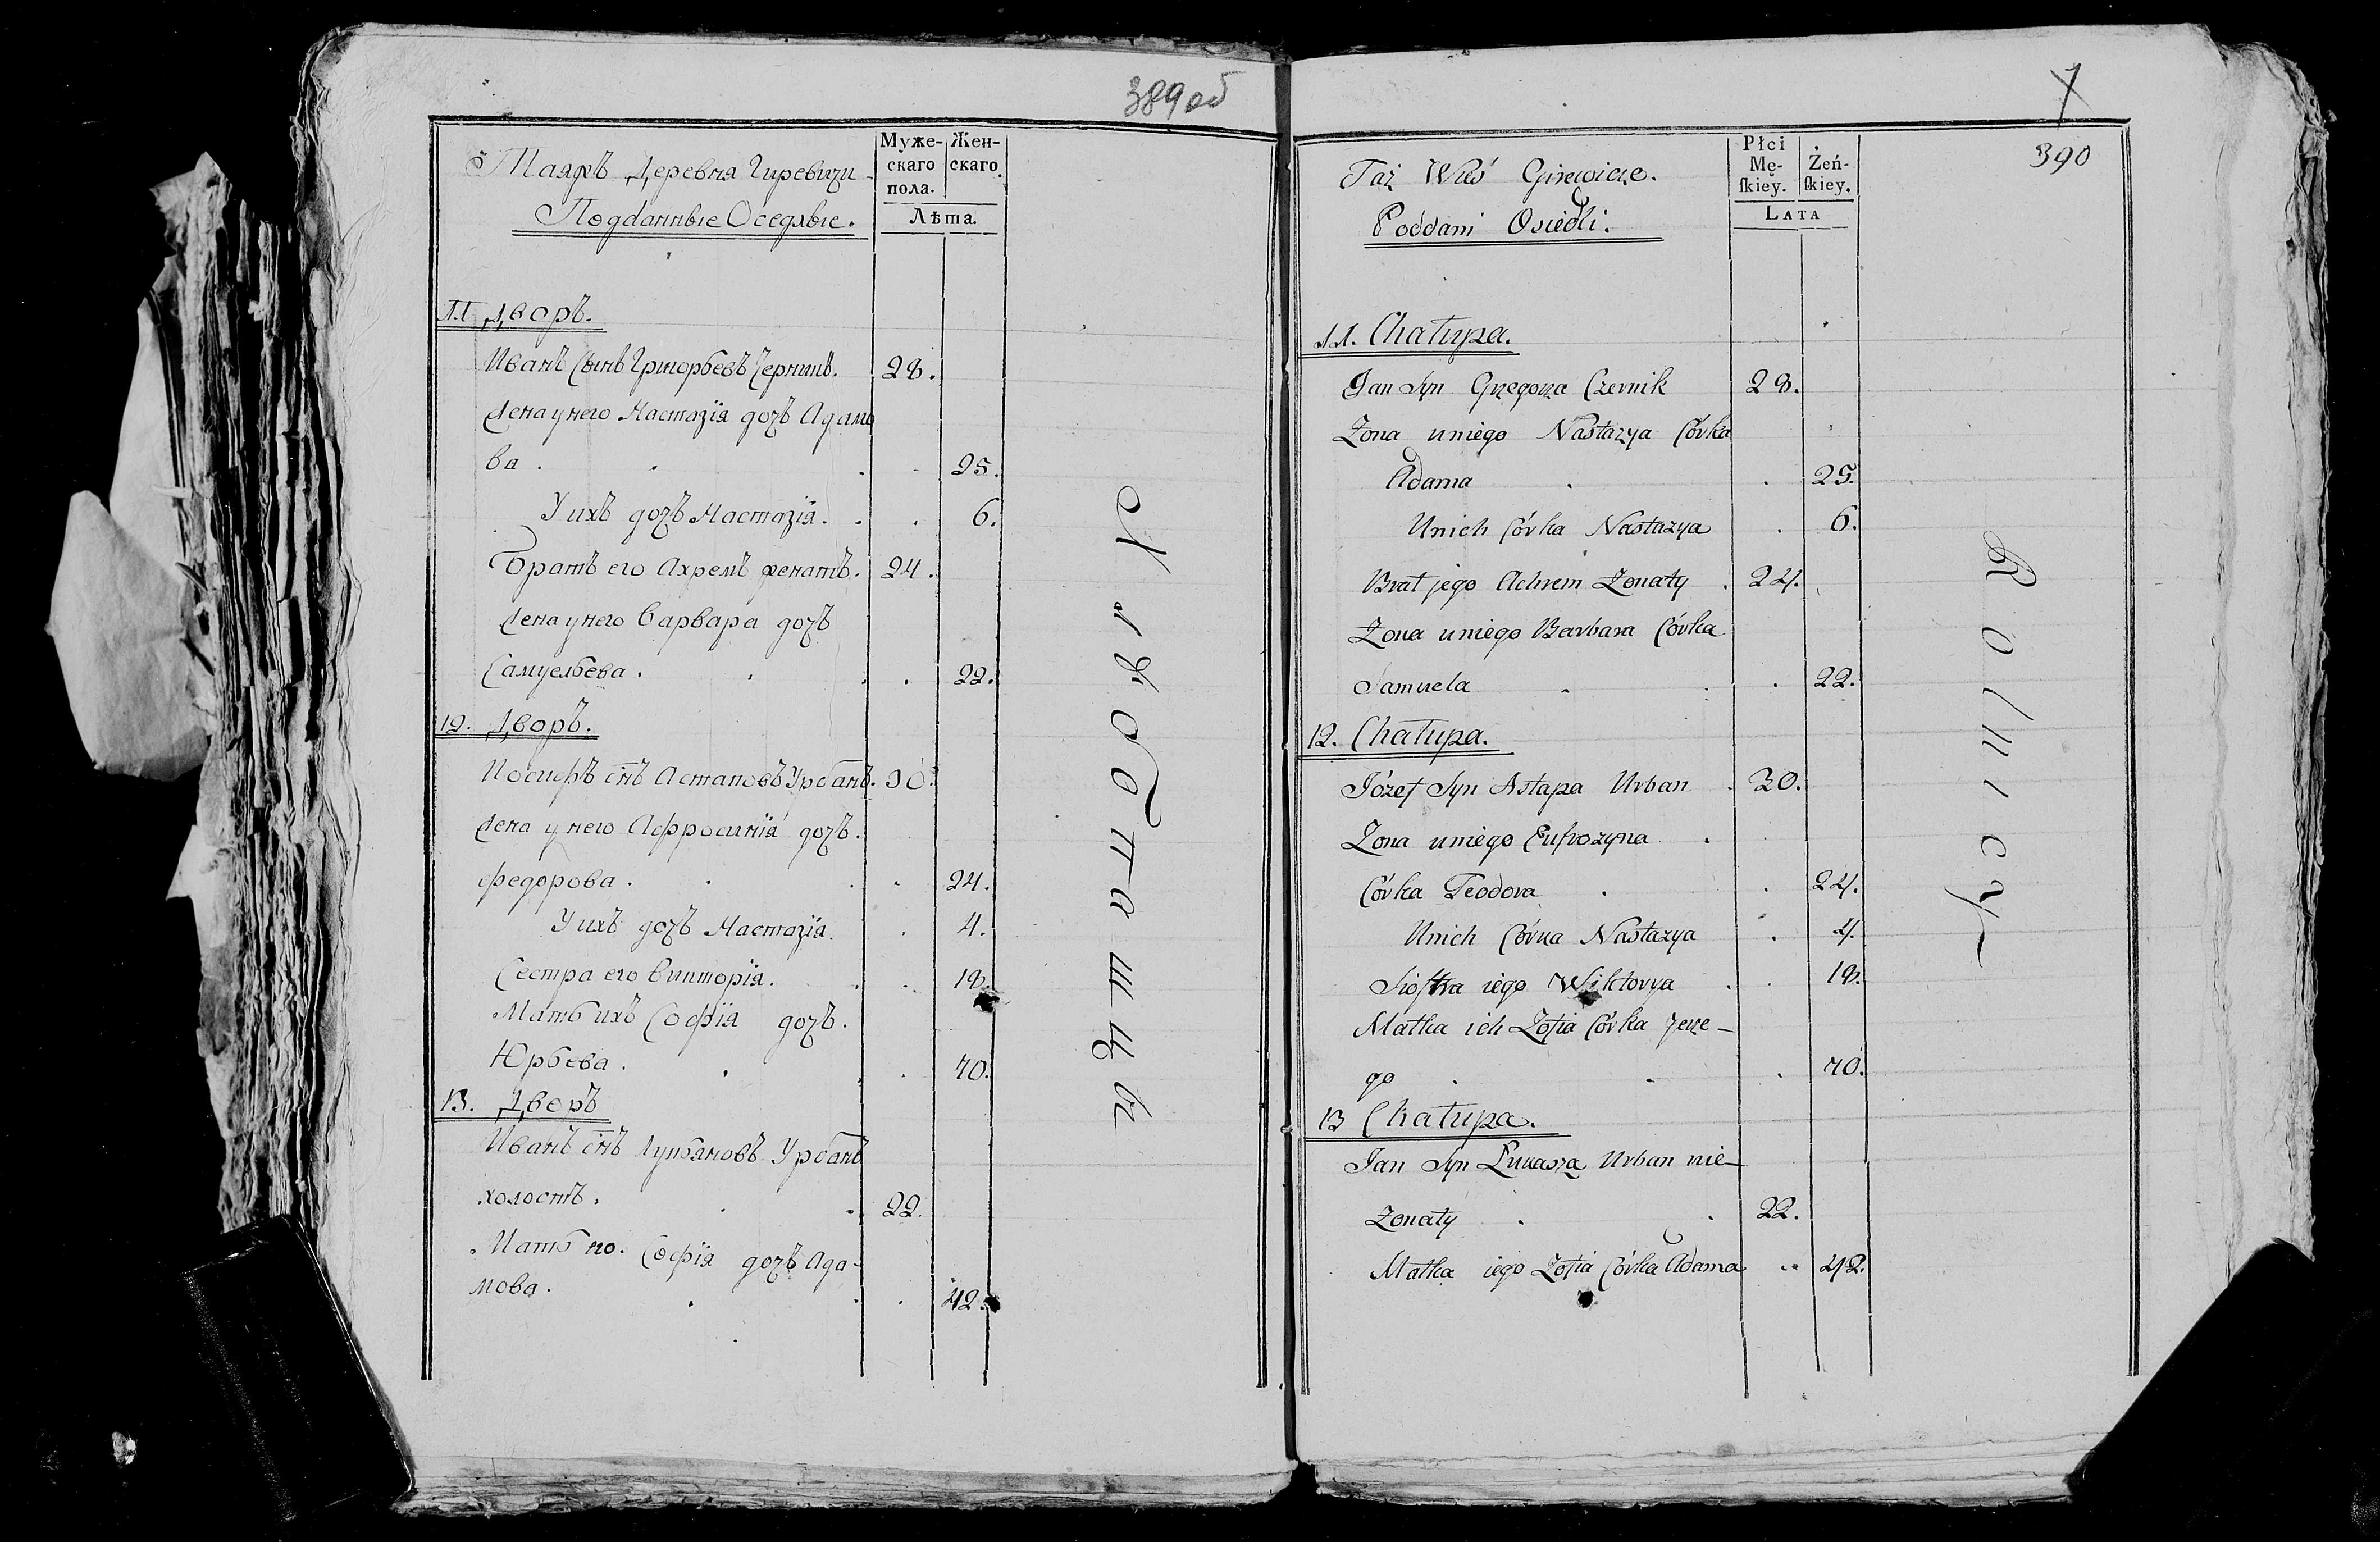 389 об
Таяжъ Деревня Гиревичи
Подданные Оседлые.
Муже-
скаго
пола.
Жен-
скаго.
Лѣта.
11 Дворъ.
Иванъ Сынъ Григорьевъ Черникъ. 28.
Жена у него Настазія дочь Адамо
ва . . . . 25.
У ихъ дочь Настазія. . . 6.
Братъ его Ахремъ женатъ. 24.
Жена у него Варвара дочь
Самуельева. . . . 22.
12. Дворъ.
Иосифъ снъ Астаповъ Урбанъ. 30.
Жена у него Афросинія дочь.
Федорова. . . . 24.
У ихъ дочь Настазія. . 4.
Сестра его Викторія. . . 18.
Мать ихъ Софія дочь.
Юрьева. . . . 70.
13. Дворъ
Иванъ снъ Лукьяновъ Урбанъ
холостъ. . . 22.
Мать его. Софія дочь Ада-
мова. . . . 42.
Хлѣбопашцы
7
390
Taż Wieś Girewicze.
Poddani Osiedli.
Płci
Mę-
ſkiey.
Żeń-
ſkiey.
LATA
11. Chałupa.
Jan Syn Grzegorza Czernik 28.
Żona uniego Nastazya Córka
Adama . . 25.
Unich Córka Nastazya . 6.
Brat jego Achrem Żonaty . 24.
Żona uniego Barbara Córka
Samuela . . . 22.
12. Chałupa.
Józef Syn Astapa Urban . 30.
Żona uniego Eufrozyna .
Córka Teodora . . 24.
Unich Córka Nastazya . 4.
Sioſtra iego Wiktorya . . 18.
Matka ich Zofia Córka Jerze-
go . . . 70.
13 Chałupa.
Jan Syn Łukasza Urban nie-
Żonaty . . 22.
Matka iego Zofia Córka Adama .. 42.
Rolnicy